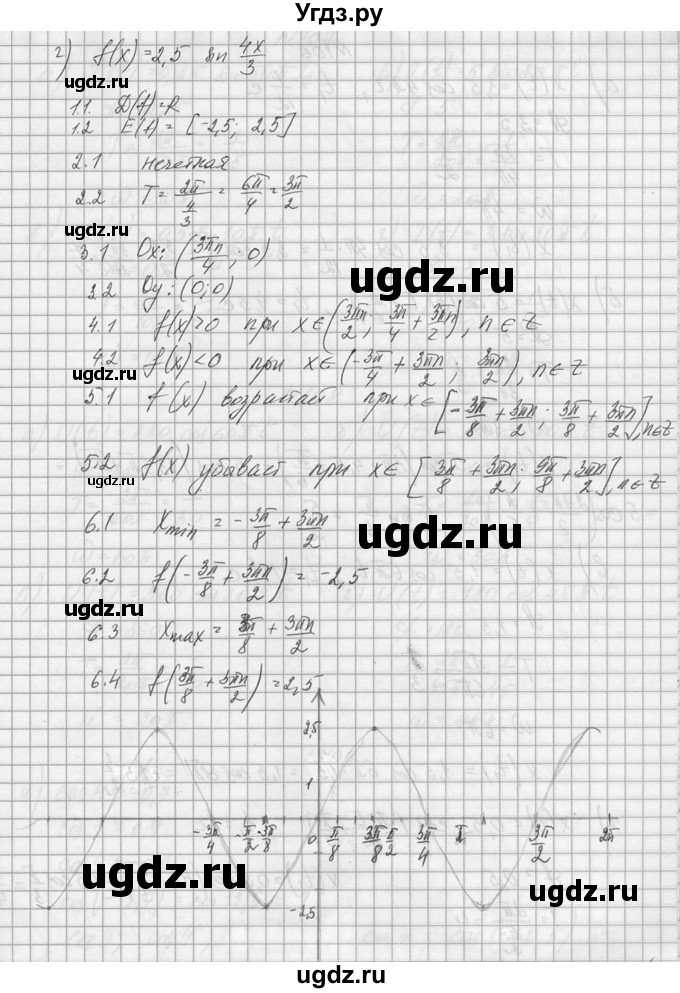 Угдз.ру
г) f(x) = 2,5 sin 4x/3
ugdz.ru
1.1. D(f)=R
1.2 E(f) = [-2,5; 2,5]
2.1 нечетная
2.2 T = 2π/(4/3) = 6π/4 = 3π/2
ugdz.ru
3.1 Ox: (3πn/4; 0)
ugdz.ru
2.2 Oy: (0;0)
4.1 f(x)>0 при x∈(3πn/2; 3π/4 + 3πn/2), n∈Z
4.2 f(x)<0 при x∈(-3π/4 + 3πn/2; 3πn/2), n∈Z
ugdz.ru
5.1 f(x) возрастает при x∈[-3π/8 + 3πn/2; 3π/8 + 3πn/2], n∈Z
5.2 f(x) убывает при x∈[3π/8 + 3πn/2; 9π/8 + 3πn/2], n∈Z
ugdz.ru
6.1 xmin = -3π/8 + 3πn/2
ugdz.ru
6.2 f(-3π/8 + 3πn/2) = -2,5
ugdz.ru
6.3 xmax = 3π/8 + 3πn/2
6.4 f(3π/8 + 3πn/2) = 2,5
ugdz.ru
2,5
1
-3π/4 -π/2 -3π/8 0 π/8 3π/8 π/2 3π/4 π 3π/2 2π
ugdz.ru ugdz.ru
-2,5
ugdz.ru